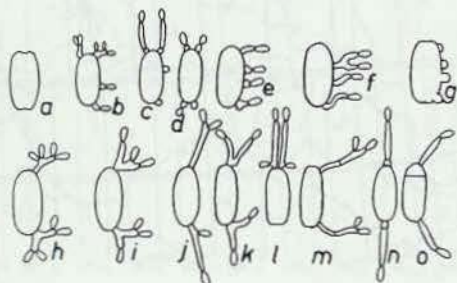 a b c d e f g
h i j k l m n o